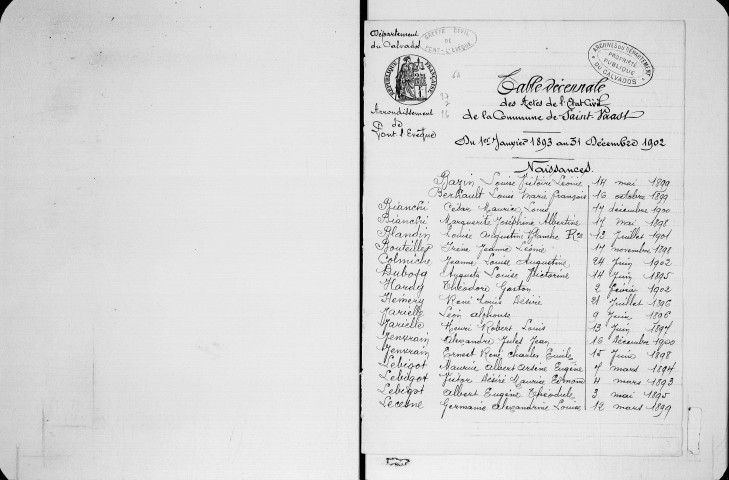 Département
du Calvados
GREFFE CIVIL
DE
PONT-L'EVÊQUE
ARCHIVES DU DÉPARTEMENT
PROPRIÉTÉ
PUBLIQUE
DU CALVADOS
RÉPUBLIQUE FRANÇAISE
Arrondissement
de
Pont l'Evêque
Table décennale
des Actes de l'Etat Civil
de la Commune de Saint Vaast
Du 1er Janvier 1893 au 31 Décembre 1902
Naissances.
Bazin Louise Victoire Léonie 14 mai 1899
Berrault Louis Marie François 16 octobre 1899
Bianchi César Maurice Louis 17 décembre 1900
Bianchi Marguerite Joséphine Albertine 17 mai 1898
Blandin Louise Augustine Blanche 13 Juillet 1901
Bouteiller Irène Jeanne Léonie 17 novembre 1898
Colmiche Jeanne Louise Augustine 24 Juin 1902
Dubosq Augusta Louise Victorine 14 Juin 1895
Hardy Théodore Gaston 2 février 1902
Hémery René Louis Désiré 21 Juillet 1896
Marielle Léon Alphonse 9 Juin 1896
Marielle Henri Robert Louis 13 Juin 1897
Jenvrain Alexandre Jules Jean 16 Décembre 1900
Jenvrain Ernest René Charles Emile 15 Juin 1898
Lebigot Maurice Albert Arsène Eugène 7 mars 1894
Lebigot Victor Désiré Maurice Edmond 4 mars 1893
Lebigot Albert Eugène Théodule 3 mai 1895
Lecesne Germaine Alexandrine Louise 12 mars 1899